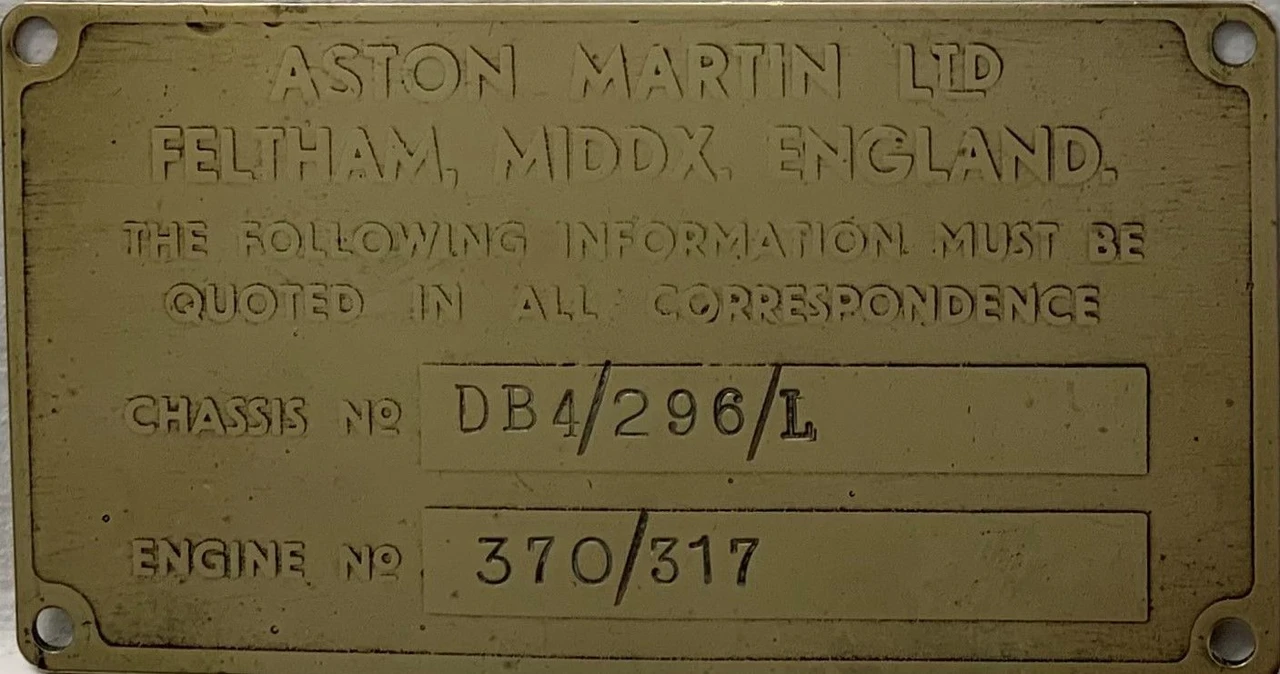 ASTON MARTIN LTD
FELTHAM, MIDDX. ENGLAND.
THE FOLLOWING INFORMATION MUST BE
QUOTED IN ALL CORRESPONDENCE
CHASSIS Nº DB4/296/L
ENGINE Nº 370/317